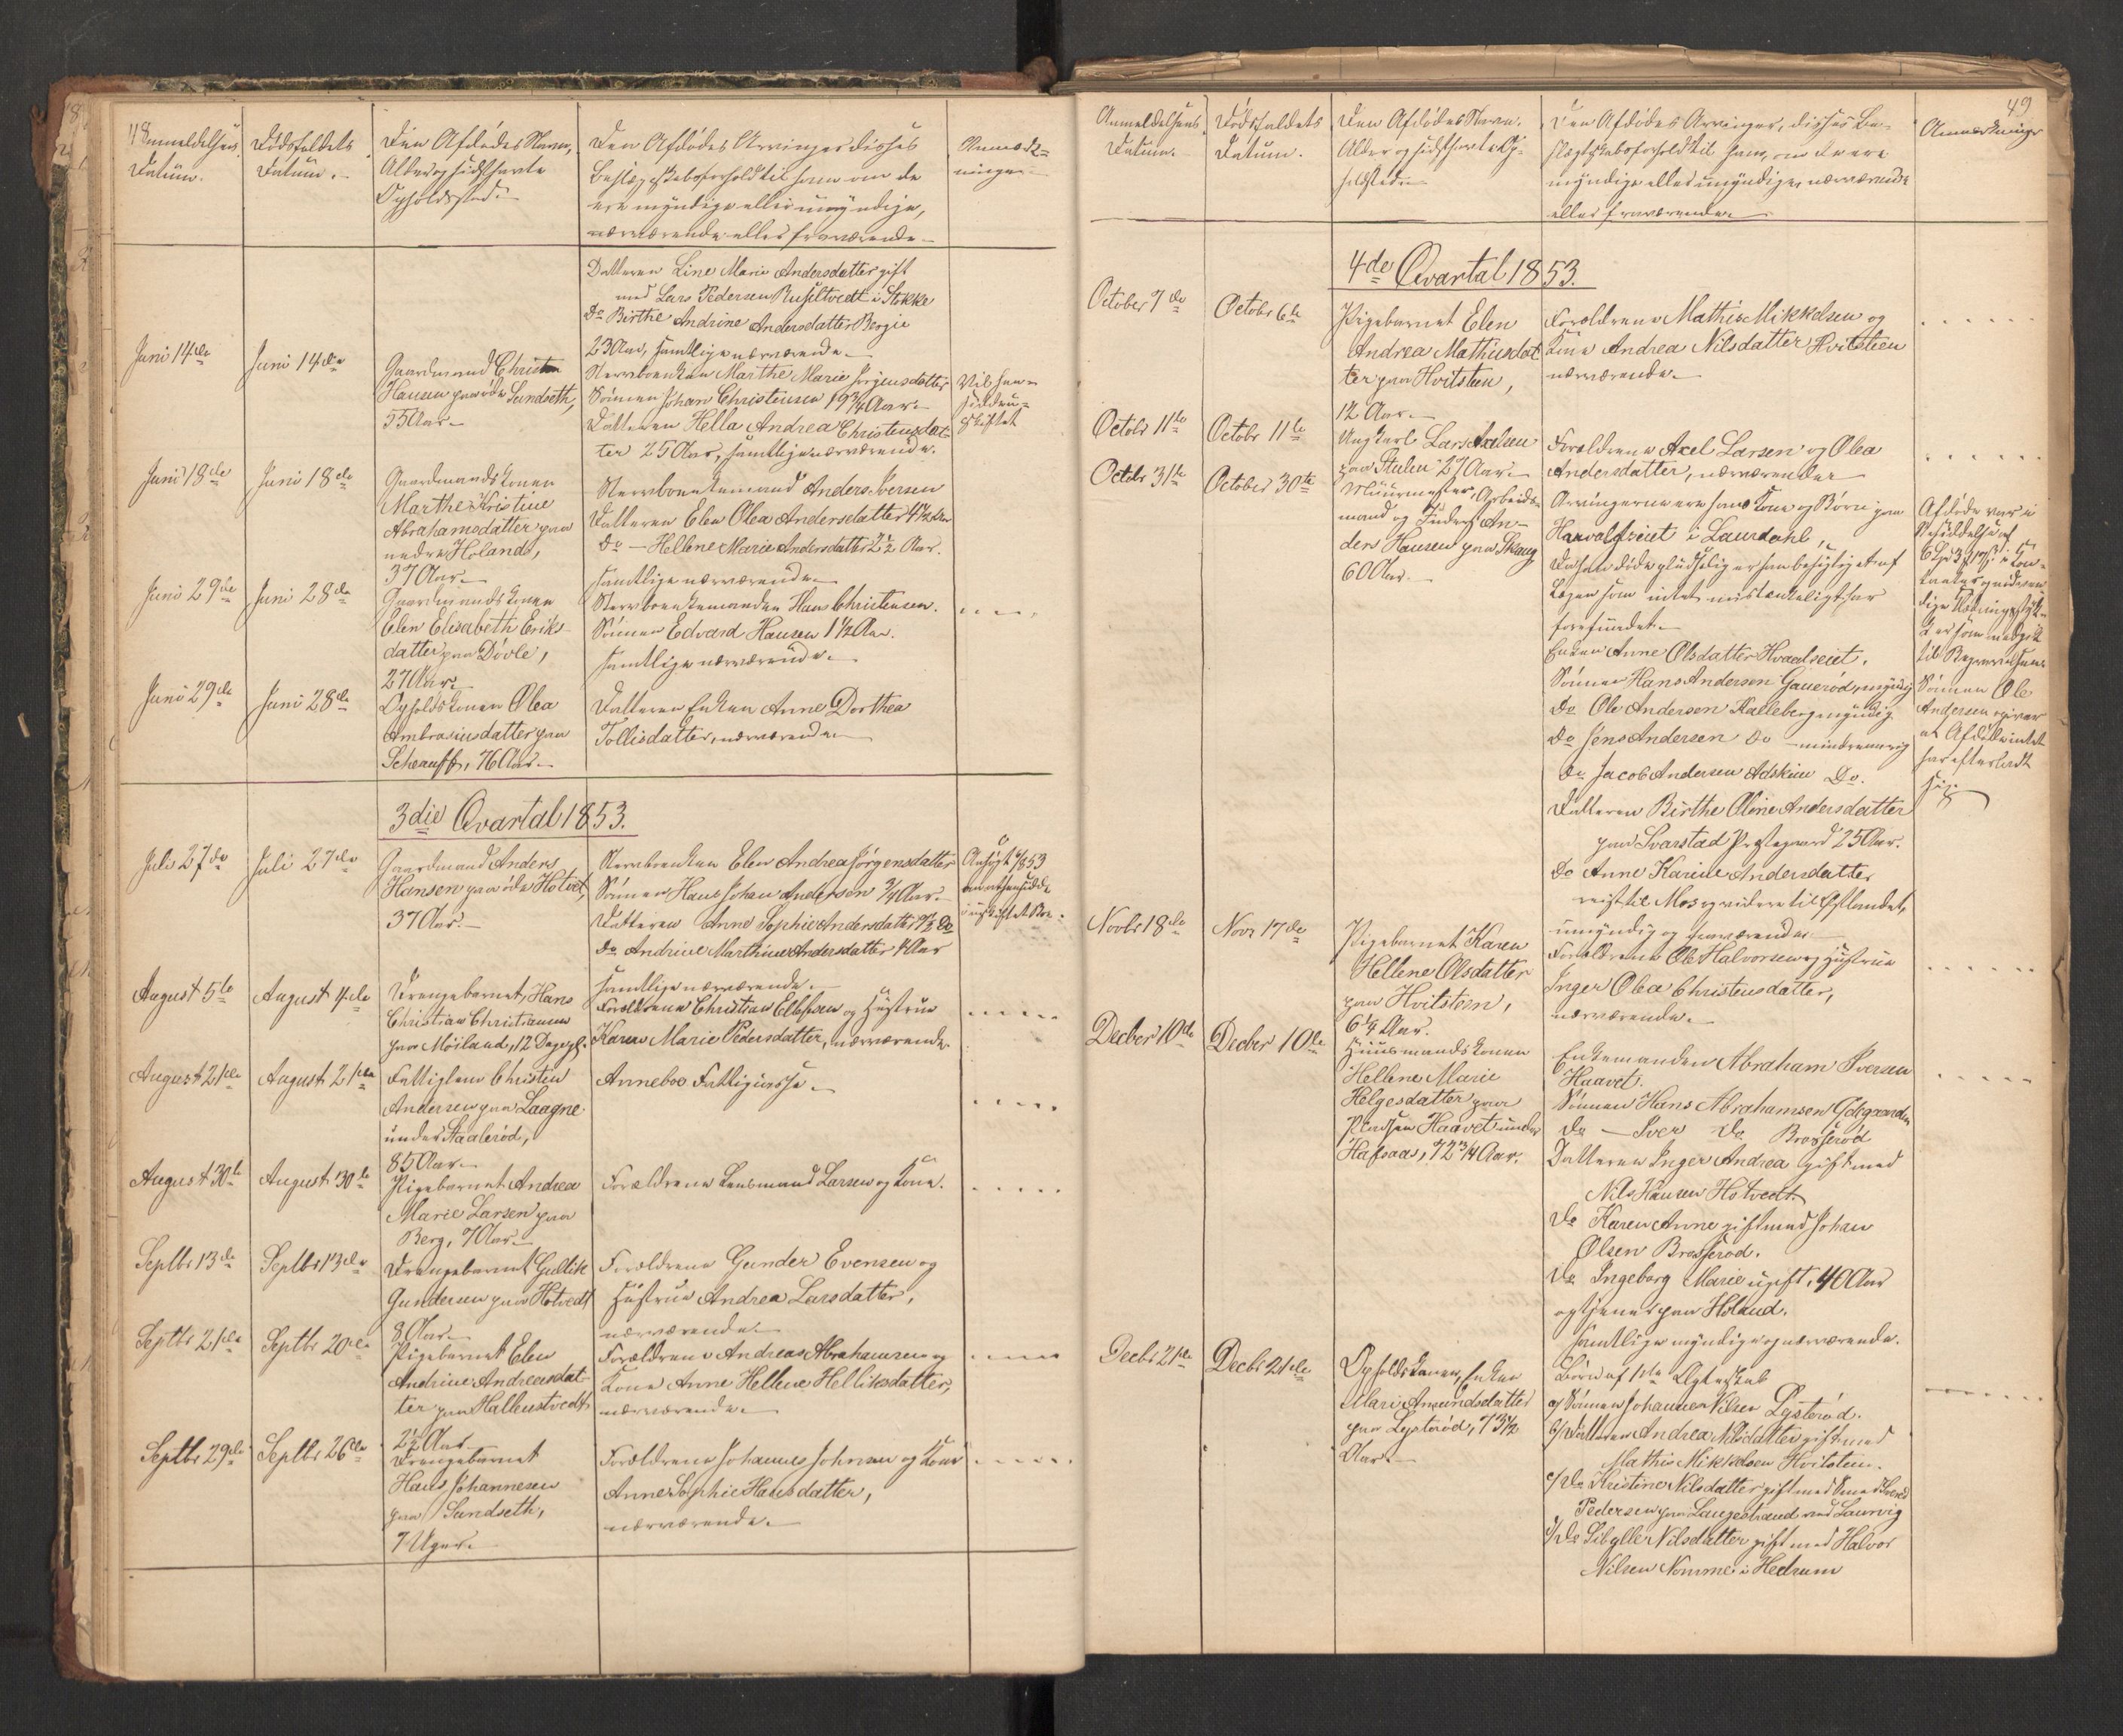 48
Anmeldelsens
Datum.
Dødsfaldets
Datum.
Den Afdødes Navn,
Alder og sidst havte
Opholdssted.
Den Afdødes Arvinger disses
Beslægtskabsforhold til ham om de
ere myndige eller umyndige,
nærværende eller fraværende
Anmærk-
ninger
Datteren Line Marie Andersdatter gift
med Lars Pedersen i Stokke
Do Birthe Andrine Andersdatter Bergie
23 Aar, samtlige nærværende.
Juni 14de
Juni 14de
Gaardmand Christen
Hansen paa Sundseth,
55 Aar
Stervboenken Marthe Marie Jørgensdatter
Sønnen Johan Christensen 19 3/4 Aar.
Datteren Hella Andrea Christensdat-
ter 25 Aar, samtlige nærværende.
Vil hen-
sidde u-
skiftet
Juni 18de
Juni 18de
Gaardmandskonen
Marthe Kristine
Abrahamsdatter paa
nedre Holand,
37 Aar
Stervboenkemand Anders Iversen
Datteren Elen Olea Andersdatter 4 1/2 Aar
Do — Hellene Marie Andersdatter 2 1/2 Aar.
samtlige nærværende
Juni 29de
Juni 28de
Gaardmandskonen
Elen Elisabeth Eriks-
datter paa Døvle,
27 Aar.
Stervboenkemanden Hans Christensen.
Sønnen Edvard Hansen 1 1/2 Aar.
samtlige nærværende.
Juni 29de
Juni 28de
Opholdskonen Olea
Ambrosiusdatter paa
76 Aar
Datteren Enken Anne Dorthea
Tollisdatter, nærværende
3die Qvartal 1853.
Juli 27de
Juli 27de
Gaardmand Anders
Hansen paa Hotvet,
37 Aar.
Stervboenken Elen Andrea Jørgensdatter
Sønnen Hans Johan Andersen 3/4 Aar.
Datteren Anne Sophie Andersdatter Do
Do Andrine Marthine Andersdatter 4 Aar
samtlige nærværende.
August 5te
August 4de
Drengebarnet Hans
Christian Christiansen
paa Møiland, 12 Dage gl.
Forældrene Christian Ellefsen og Hustrue
Karen Marie Pedersdatter, nærværende
August 21de
August 21de
Fattiglem Christen
Andersen paa Laagne
under Staalerød,
85 Aar
Anneboe Fattigcasse.
August 30te
August 30te
Pigebarnet Andrea
Marie Larsen paa
Berg, 7 Aar
Forældrene Lensmand Larsen og Kone.
Septbr 13de
Septbr 13de
Drengebarnet Gullik
Gundersen paa Hotvedt
8 Aar
Forældrene Gunder Evensen og
Hustrue Andrea Larsdatter,
nærværende
Septbr 21de
Septbr 20de
Pigebarnet Elen
Andrine Andreasdat-
ter paa Hallenstvedt
2 1/2 Aar
Forældrene Andreas Abrahamsen og
Kone Anne Hellene Helliksdatter,
nærværende.
Septbr 29de
Septbr 26de
Drengebarnet
Hans Johannesen
paa Sundseth,
7 Uger.
Forældrene Johannes Johnsen og Kone
Anne Sophie Hansdatter,
nærværende.
49
Anmeldelsens
Datum.
Dødsfaldets
Datum.
Den Afdødes Navn.
Alder og sidsthavte Op-
holdsted
Den Afdødes Arvinger, disses Be-
slægtskabsforhold til ham, om de ere
myndige eller umyndige, nærværende
eller fraværende
Anmærkninger
4de Qvartal 1853.
October 7de
Octobr 6te
Pigebarnet Elen
Andrea Mathiasdat-
ter paa Hvitsteen,
12 Aar
Forældrene Mathis Mikkelsen og
Kone Andrea Nilsdatter Hvitsteen
nærværende
Octobr 11te
Octobr 11te
Ungkarl Lars Axelsen
paa Stulen 27 Aar
Forældrene Axel Larsen og Olea
Andersdatter, nærværende
Octbr 31te
October 30te
Muurmester, Arbeids-
mand og Inderst An-
ders Hansen paa Skaug
60 Aar.
Arvingerne ere hans Kone og Børn paa
i Laurdahl,
Da han døde pludselig er han besigtiget af
Lægen som intet mistænkeligt har
forefundet
Enken Anne Olsdatter
Sønnen Hans Andersen Gauerød, myndig
Do Ole Andersen Kalleberg myndig
Do Jens Andersen Do — mindreaarig
Do Jacob Andersen Adskim Do.
Datteren Birthe Oline Andersdatter
paa Svarstad Prestegaard 25 Aar.
Do Anne Karine Andersdatter
reist til Mos og videre til Østlandet,
umyndig og fraværende
Afdøde var i
Besiddelse af
som medgik
til Begravelsen
Sønnen Ole
Andersen opgiver
at Afdøde intet
har efterladt
sig
Novbr 18de
Novr 17de
Pigebarnet Karen
Hellene Olsdatter
paa Hvitsteen,
6 1/4 Aar.
Forældrene Ole Halvorsen og Hustrue
Inger Olea Christensdatter,
nærværende.
Decber 10de
Decber 10de
Huusmandskonen
Hellene Marie
Helgesdatter paa
Pladsen Haavet under
Hafsaas, 72 3/4 Aar.
Enkemanden Abraham Iversen
Haavet.
Sønnen Hans Abrahamsen Ødegaarden
Do — Iver Do Brosserød
Datteren Inger Andrea gift med
Nils Hansen Hotvedt
Do Karen Anne gift med Johan
Olsen Brosserød.
Do Ingeborg Marie ugift, 40 Aar
og tjener paa Holand.
samtlige myndige og nærværende.
Decbr 21de
Decbr 21de
Opholdskonen, Enken
Mari Amundsdatter
paa Lysterød, 73 1/2
Aar.
Børn af 1ste Ægteskab
a) Sønnen Johannes Nilsen Lysterød.
b) Datteren Andrea Nilsdatter gift med
Mathis Mikkelsen Hvitsteen.
c) Do Kristine Nilsdatter gift med Smed
Pedersen paa Langestrand ved Laurvig
d) Do Sibylle Nilsdatter gift med Halvor
Nilsen Nomme i Hedrum